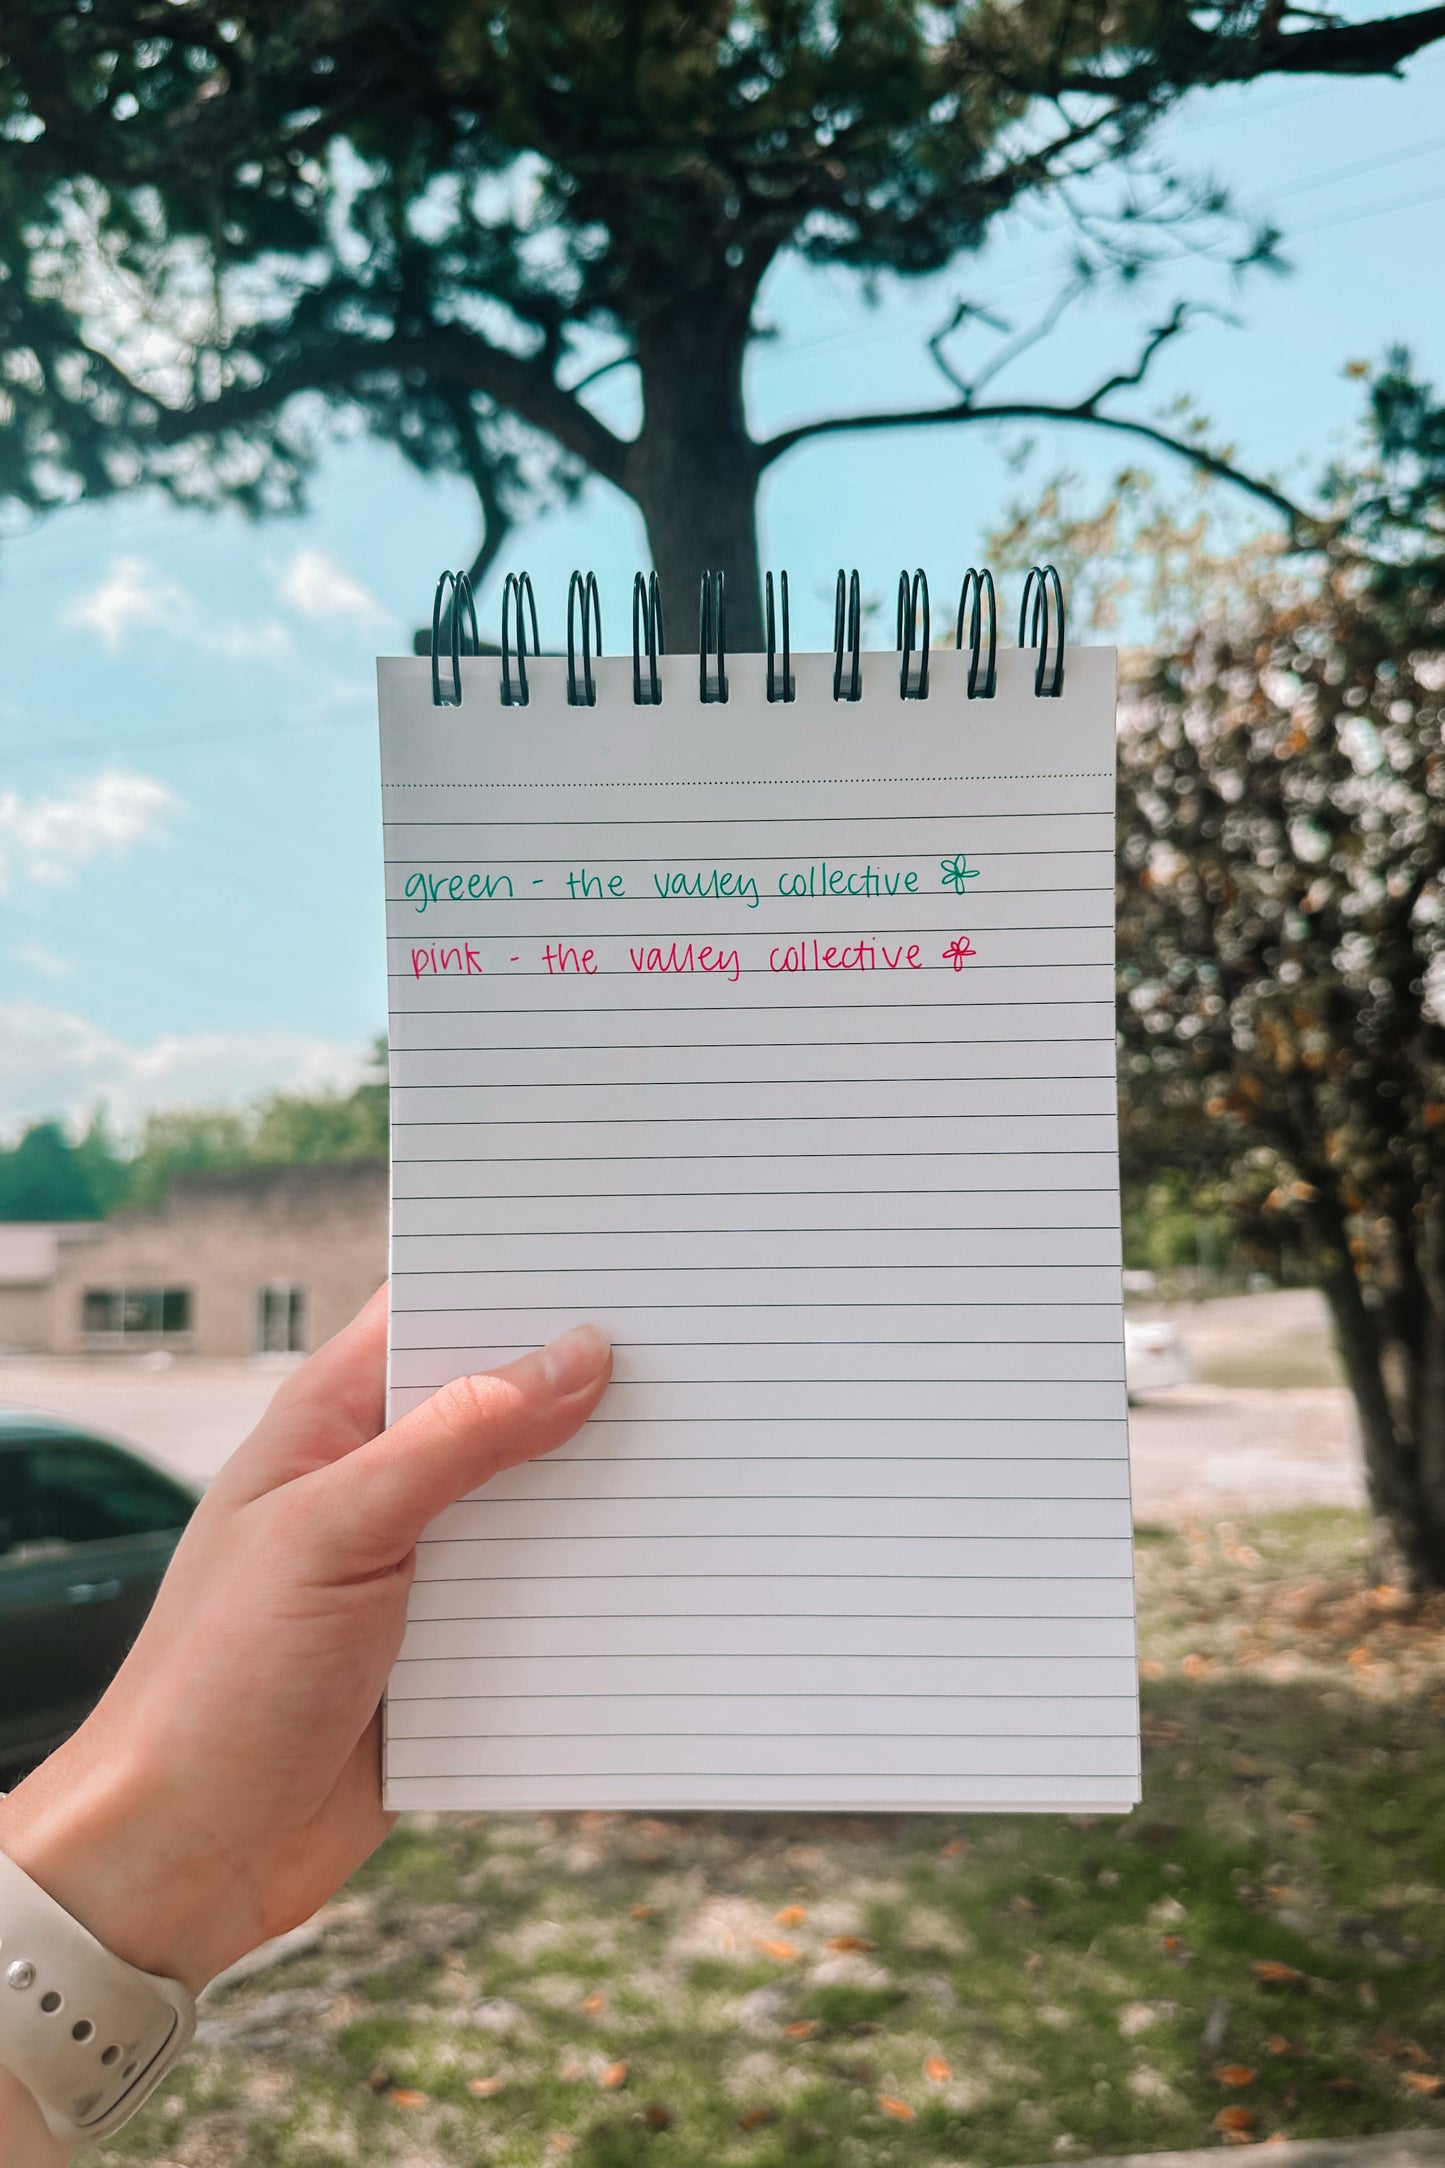 green - the valley collective
pink - the valley collective